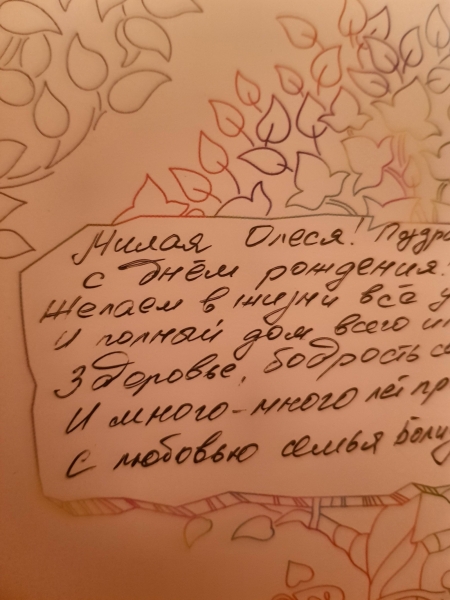 Милая Олеся! Поздра
с днём рождения!
Желаем в жизни всё у
И полный дом всего
Здоровье, бодрость
И много-много лет пр
С любовью семья Боли